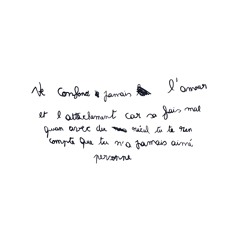 Ne confond jamais l'amour
et l'attachement car sa fais mal
quan avec du recul tu te ren
compte que tu n'a jamais aimé
personne